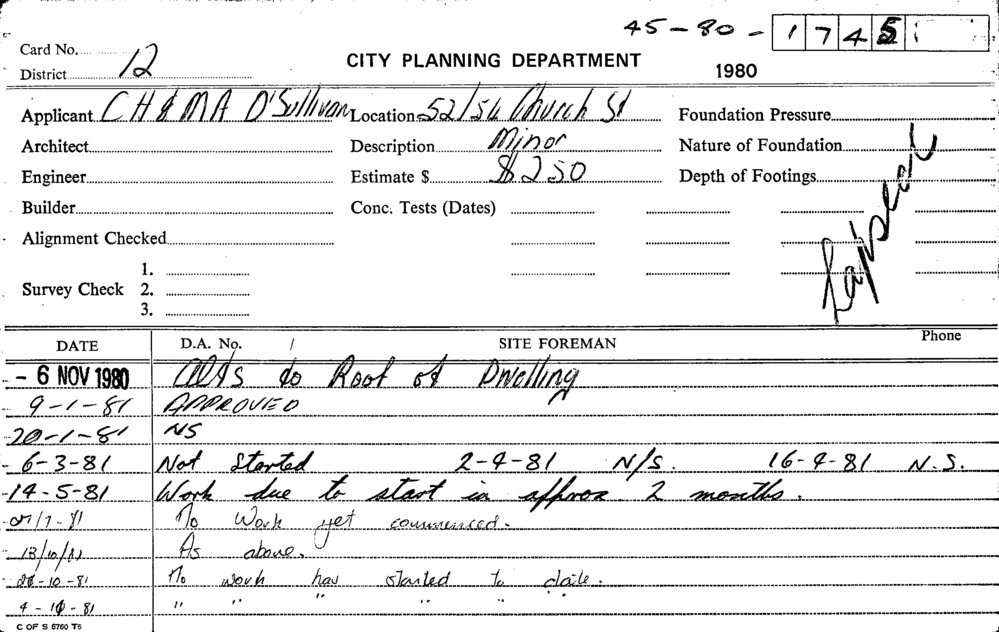 45-80- 1745
Card No.
District 12
CITY PLANNING DEPARTMENT
1980
Applicant CH & MA O'Sullivan Location 52/54 Church St Foundation Pressure
Architect Description Minor Nature of Foundation
Engineer Estimate $ $250 Depth of Footings
Builder Conc. Tests (Dates)
Alignment Checked
Lapsed
1.
Survey Check 2.
3.
DATE D.A. No. / SITE FOREMAN Phone
- 6 NOV 1980 Alts to Roof of Dwelling
9-1-81 APPROVED
20-1-81 NS
6-3-81 Not Started 2-4-81 N/S. 16-4-81 N.S.
14-5-81 Work due to start in approx. 2 months.
/7-81 No Work yet commenced.
13/10/81 As above.
-10-81 No work has started to date.
4-10-81 " " " " "
C OF S 6760 T6